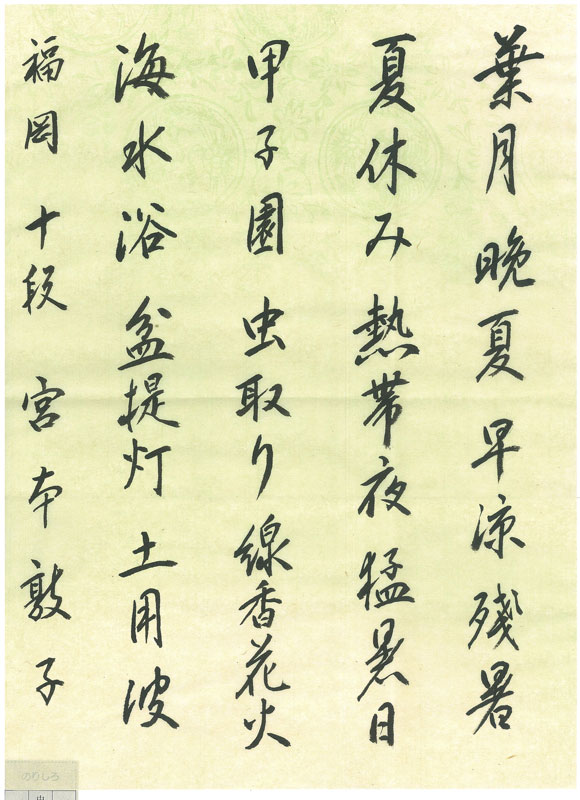 葉月 晩夏 早涼 残暑
夏休み 熱帯夜 猛暑日
甲子園 虫取り 線香花火
海水浴 盆提灯 土用波
福岡 十段 宮本敦子
のりしろ